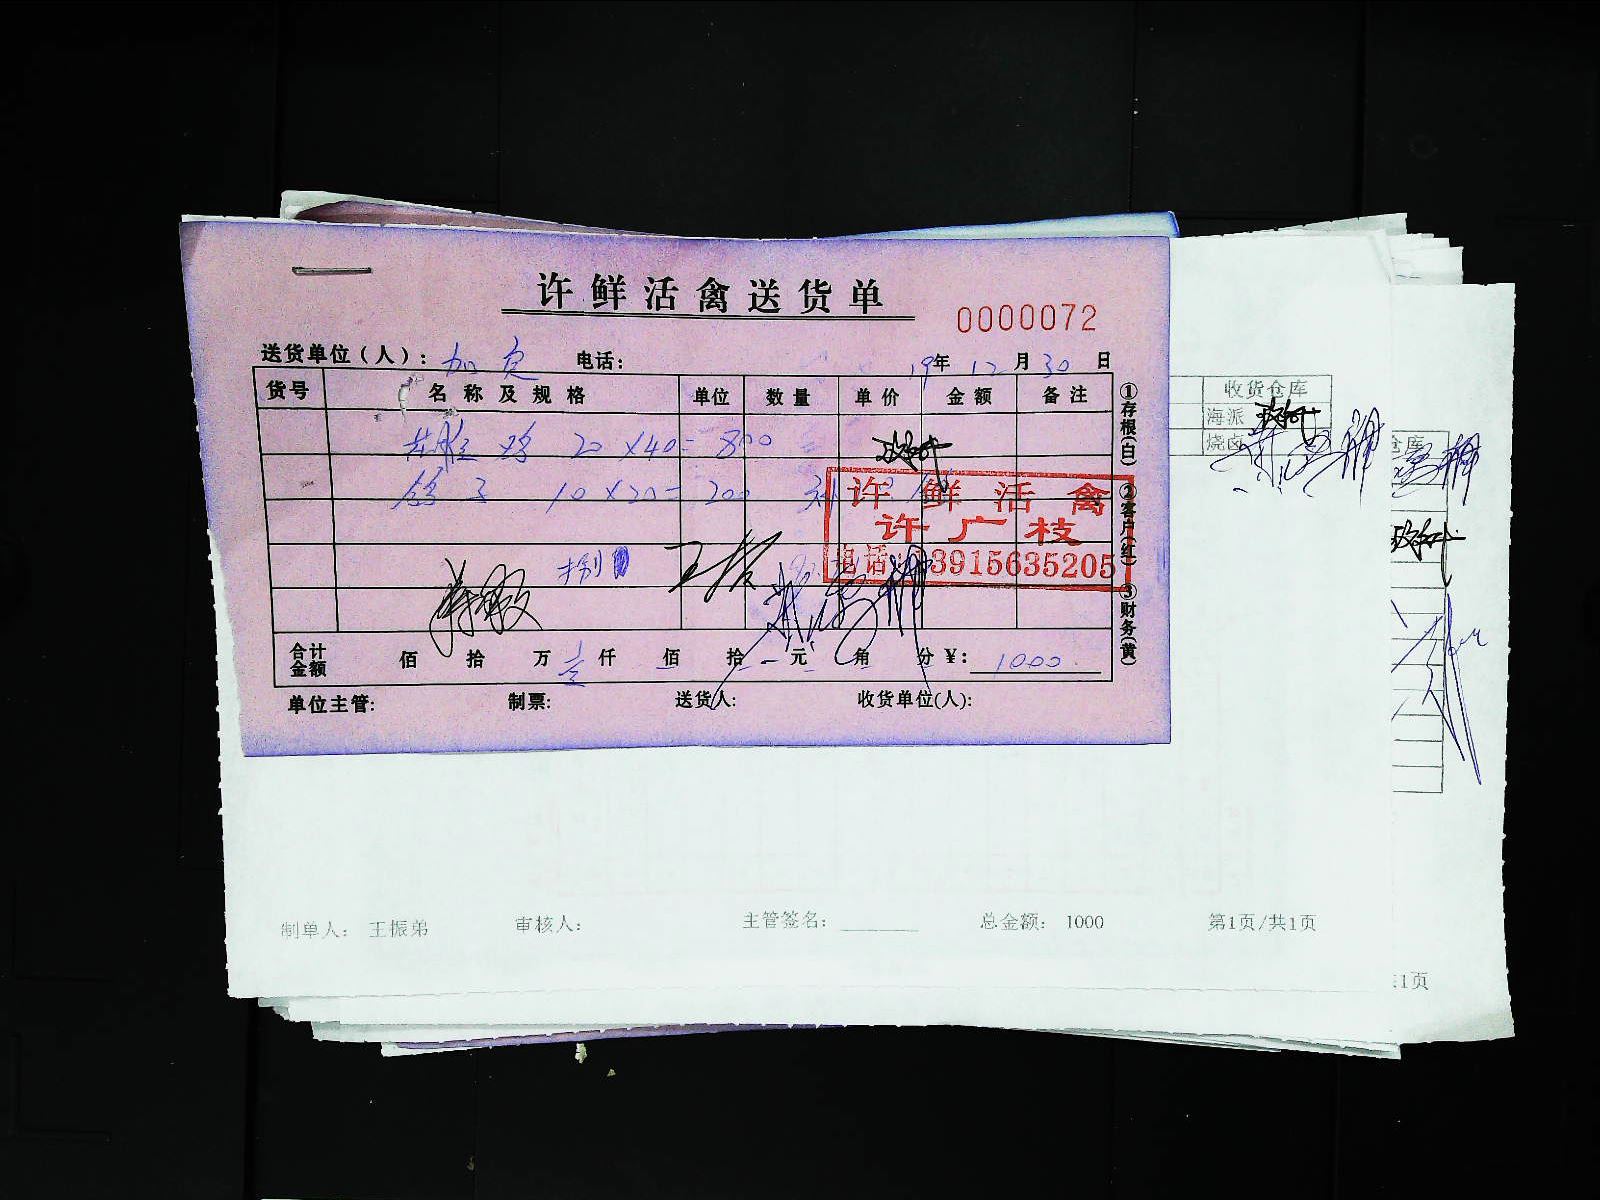 许鲜活禽送货单
0000072
送货单位(人): 加 电话: 19年 12月 30日
货号 名称及规格 单位 数量 单价 金额 备注
鸡 20×40=800
鸽子 10×20=200
许鲜活禽
许广枝
电话:13915635205
合计金额 佰 拾 万 壹仟 佰 拾 元 角 分 ¥: 1000
单位主管: 制票: 送货人: 收货单位(人):
①存根(白) ②客户(红) ③财务(黄)
收货仓库
海派
烧卤
仓库
制单人: 王振弟 审核人: 主管签名: 总金额: 1000 第1页/共1页
1页